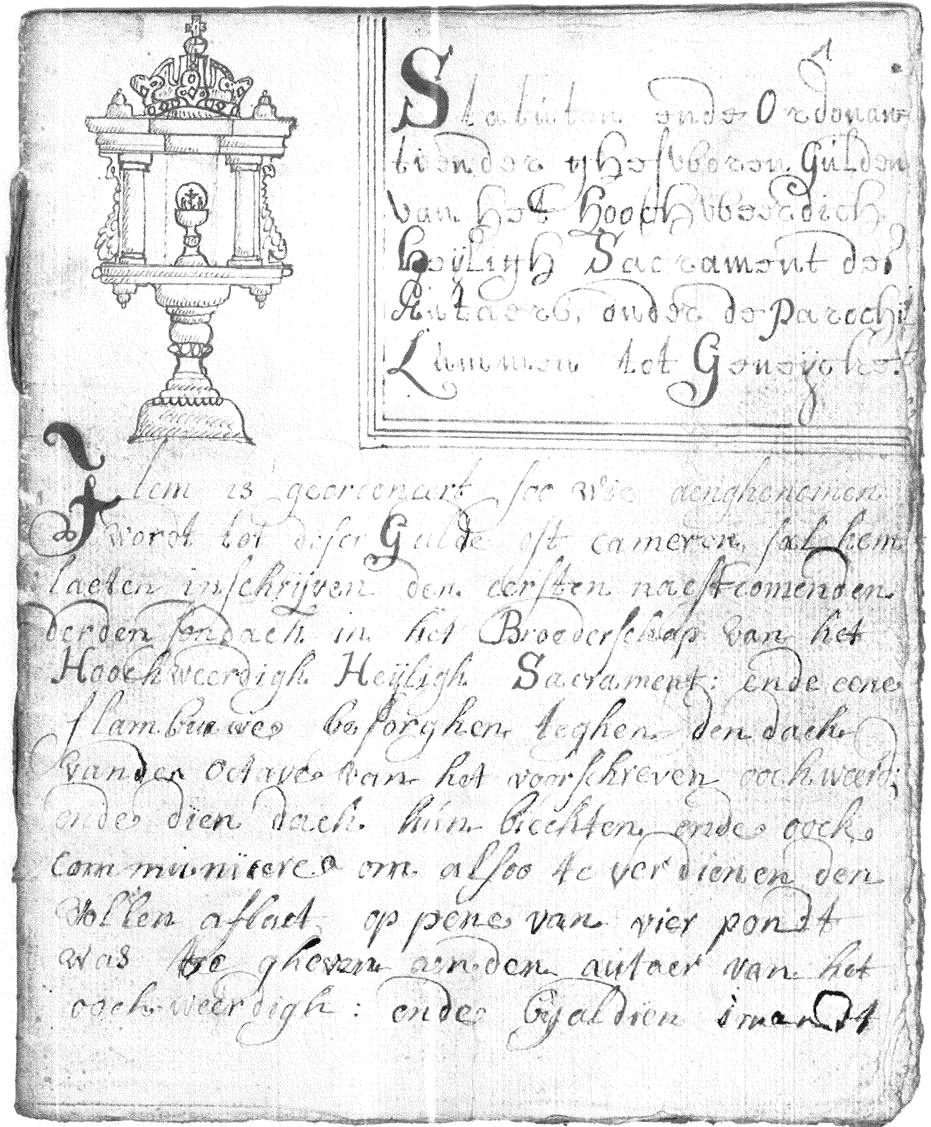 1
Statuten ende Ordonan
tien der ghesworen Gulden
van het Hoochweerdich
heÿligh Sacrament des
Autaers, onder de parochi
Lummen tot Geneÿcken
Item is geordeneert soo wie aenghenomen
wordt tot deser Gulde oft cameren, sal hem
laeten inschrijven den eersten naestcomenden
derden sondach in het Broederschap van het
Hoochweerdigh Heÿligh Sacrament: ende eene
flambuwe besorghen teghen den dach
vander Octave van het voorschreven oochweerd:
ende dien dach hun biechten ende oock
communiceren om alsoo te verdienen den
vollen aflaet op pene van vier pondt
was te gheven aenden autaer van het
oochweerdigh: ende Bÿaldien imandt